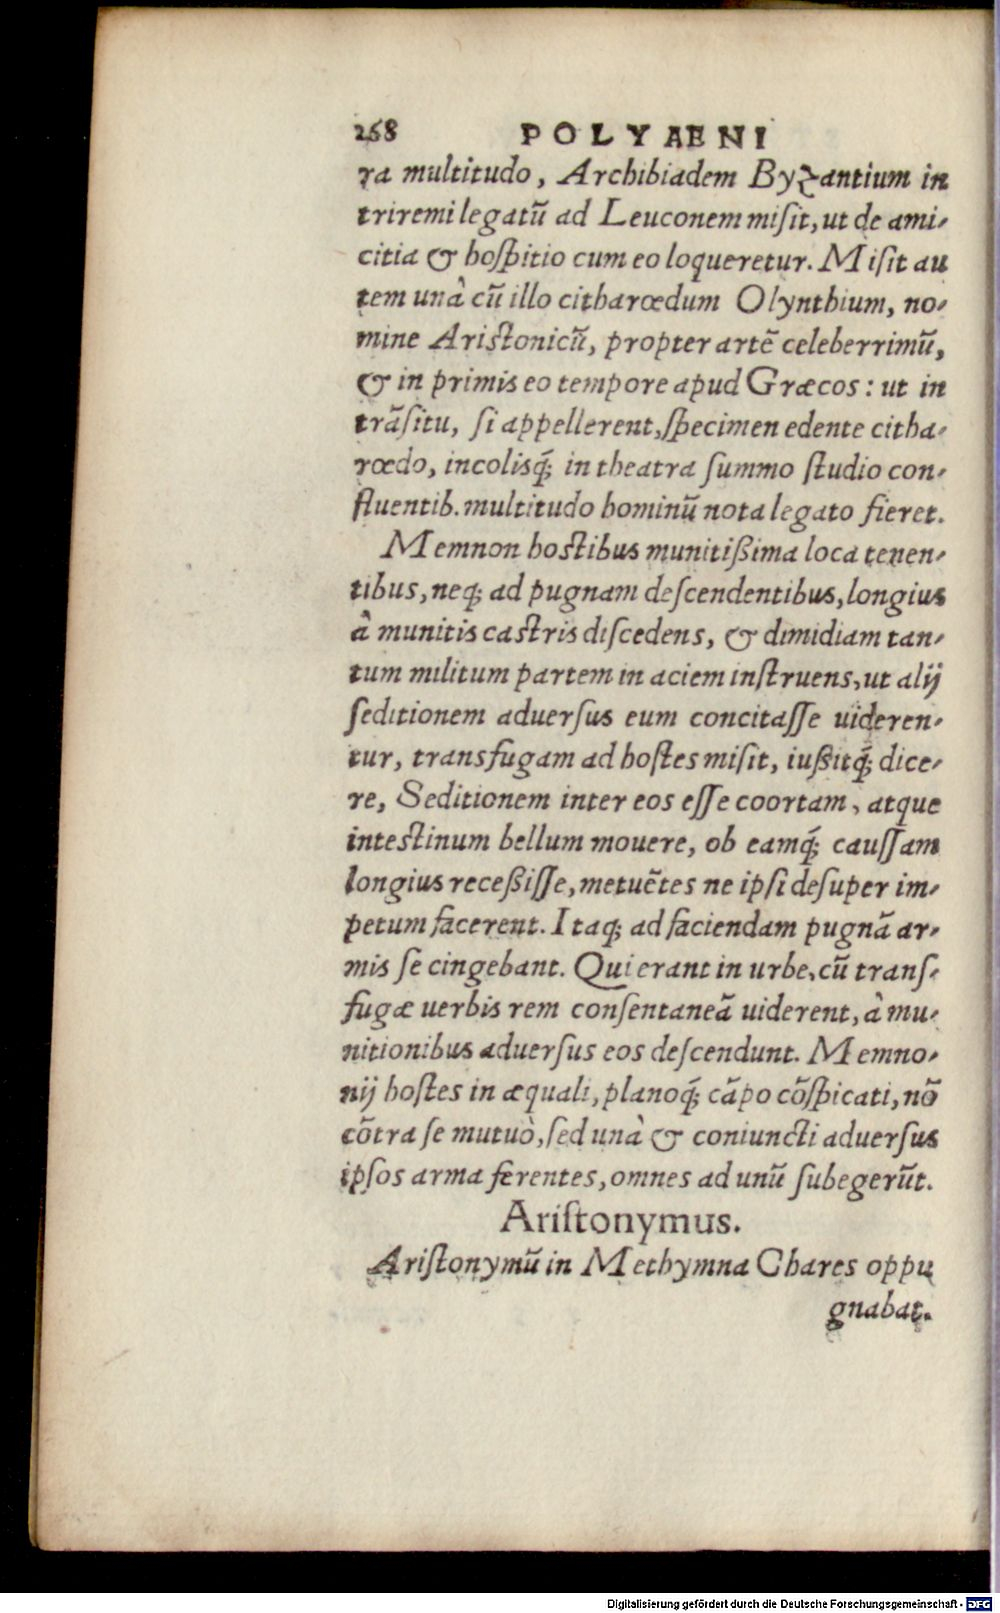 268 POLYAENI
ra multitudo, Archibiadem Byzantium in
triremi legatũ ad Leuconem miſit, ut de ami-
citia & hoſpitio cum eo loqueretur. Miſit au
tem unà cũ illo citharœdum Olynthium, no-
mine Ariſtonicũ, propter artẽ celeberrimũ,
& in primis eo tempore apud Græcos: ut in
trãſitu, ſi appellerent, ſpecimen edente citha-
rœdo, incolisq́; in theatra ſummo ſtudio con-
fluentib. multitudo hominũ nota legato fieret.
Memnon hoſtibus munitißima loca tenen-
tibus, neq; ad pugnam deſcendentibus, longius
à munitis caſtris diſcedens, & dimidiam tan-
tum militum partem in aciem inſtruens, ut alij
ſeditionem aduerſus eum concitaſſe uideren-
tur, transfugam ad hoſtes miſit, iußitq́; dice-
re, Seditionem inter eos eſſe coortam, atque
inteſtinum bellum mouere, ob eamq́; cauſſam
longius receßiſſe, metuẽtes ne ipſi deſuper im-
petum facerent. Itaq; ad faciendam pugnã ar-
mis ſe cingebant. Qui erant in urbe, cũ tranſ-
fugæ uerbis rem conſentaneã uiderent, à mu-
nitionibus aduerſus eos deſcendunt. Memno-
nij hoſtes in æquali, planoq́; cãpo cõſpicati, nõ
cõtra ſe mutuò, ſed unà & coniuncti aduerſus
ipſos arma ferentes, omnes ad unũ ſubegerũt.
Ariſtonymus.
Ariſtonymũ in Methymna Chares oppu
gnabat.
Digitalisierung gefördert durch die Deutsche Forschungsgemeinschaft - DFG